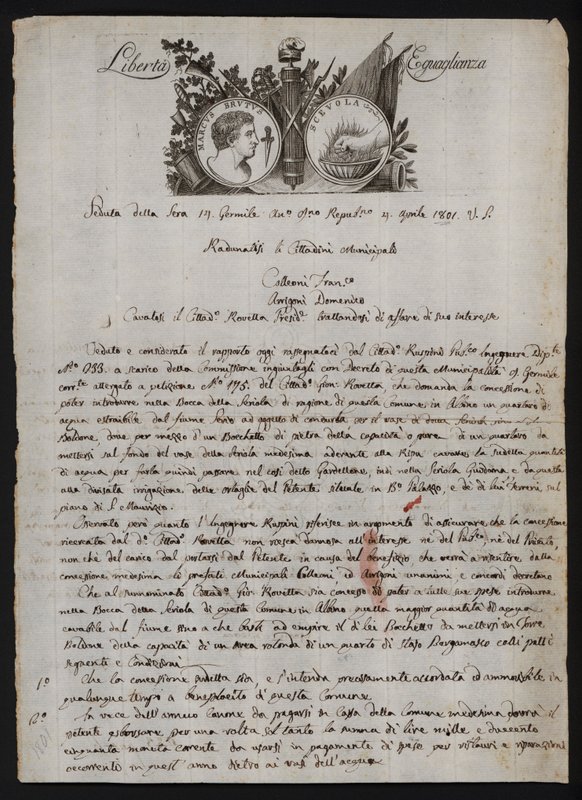 Libertà
Eguaglianza
MARCVS BRVTVS
SCEVOLA
Seduta della Sera 14. Germile An.º 9.no Repub.no 4. Aprile 1801. V. S.
Radunatisi li Cittadini Municipali
Colleoni Fran.co
Arrigoni Domenico
Cavatosi il Cittad.º Rovetta Presid.e trattandosi di affare di suo interesse
Veduto e considerato il rapporto oggi rassegnatoci dal Cittad.º Ruspini Pub.co Ingegnere
N.ro 933. a scarico della Commissione ingiuntagli con Decreto di questa Municipalità 9. Germile
corr.te allergato a petizione N.ro 175. del Cittad.º Gio: Rovetta, che domanda la concessione di
poter introdurre nella Bocca della Seriola di ragione di questa Comune in Albino un quartaro di
acqua estraibile dal fiume Serio ad oggetto di condurla per il vaso di detta Seriola sino a
Boldone, dove per mezzo d'un Bocchetto di pietra della capacità o fore di un quartaro da
mettersi sul fondo del vaso della Seriola medesima aderente alla Ripa cavare la sudetta quantità
di acqua per farla quindi passare nel così detto Gardellone, indi nella Seriola Guidana e da questa
alla divisata irrigazione delle ortaglie del Petente situate in B.º Palazzo, e de di lui terreni sul
piano di S. Maurizio.
Osservato però quanto l'Ingegnere Ruspini riferisce in argomento di assicurare che la concessione
ricercata dal d.º Cittad.º Rovetta non riesca dannosa all'interesse nè del Pub.co nè del Privato,
non che del carico da portarsi dal Petente in causa del beneficio che verrà a risentire dalla
concessione medesima li prefati Municipali Colleoni, ed Arrigoni unanimi, e concordi decretano
Che al summominato Cittad.º Gio: Rovetta sia concesso di poter a tutte sue spese introdurre
nella Bocca della Seriola di questa Comune in Albino quella maggior quantità di acqua
cavabile dal fiume sino a che basti ad empire il di lei Bocchetto da mettersi in Torre
Boldone della capacità di un area rotonda di un quarto di Stajo Bergamasco colli patti
seguenti e Condizioni
1.º Che la concessione predetta sia, e s'intenda precariamente accordata ed ammovibile in
qualunque tempo a beneplacito di questa Comune.
2.º In vece dell'annuo Canone da pagarsi in Cassa della Comune medesima dovrà il
petente esborsare per una volta soltanto la summa di lire mille e duecento
cinquanta moneta corrente da usarsi in pagamento di spese per ristauri e riparazioni
occorrenti in quest'anno dietro ai vasi dell'acqua
1801